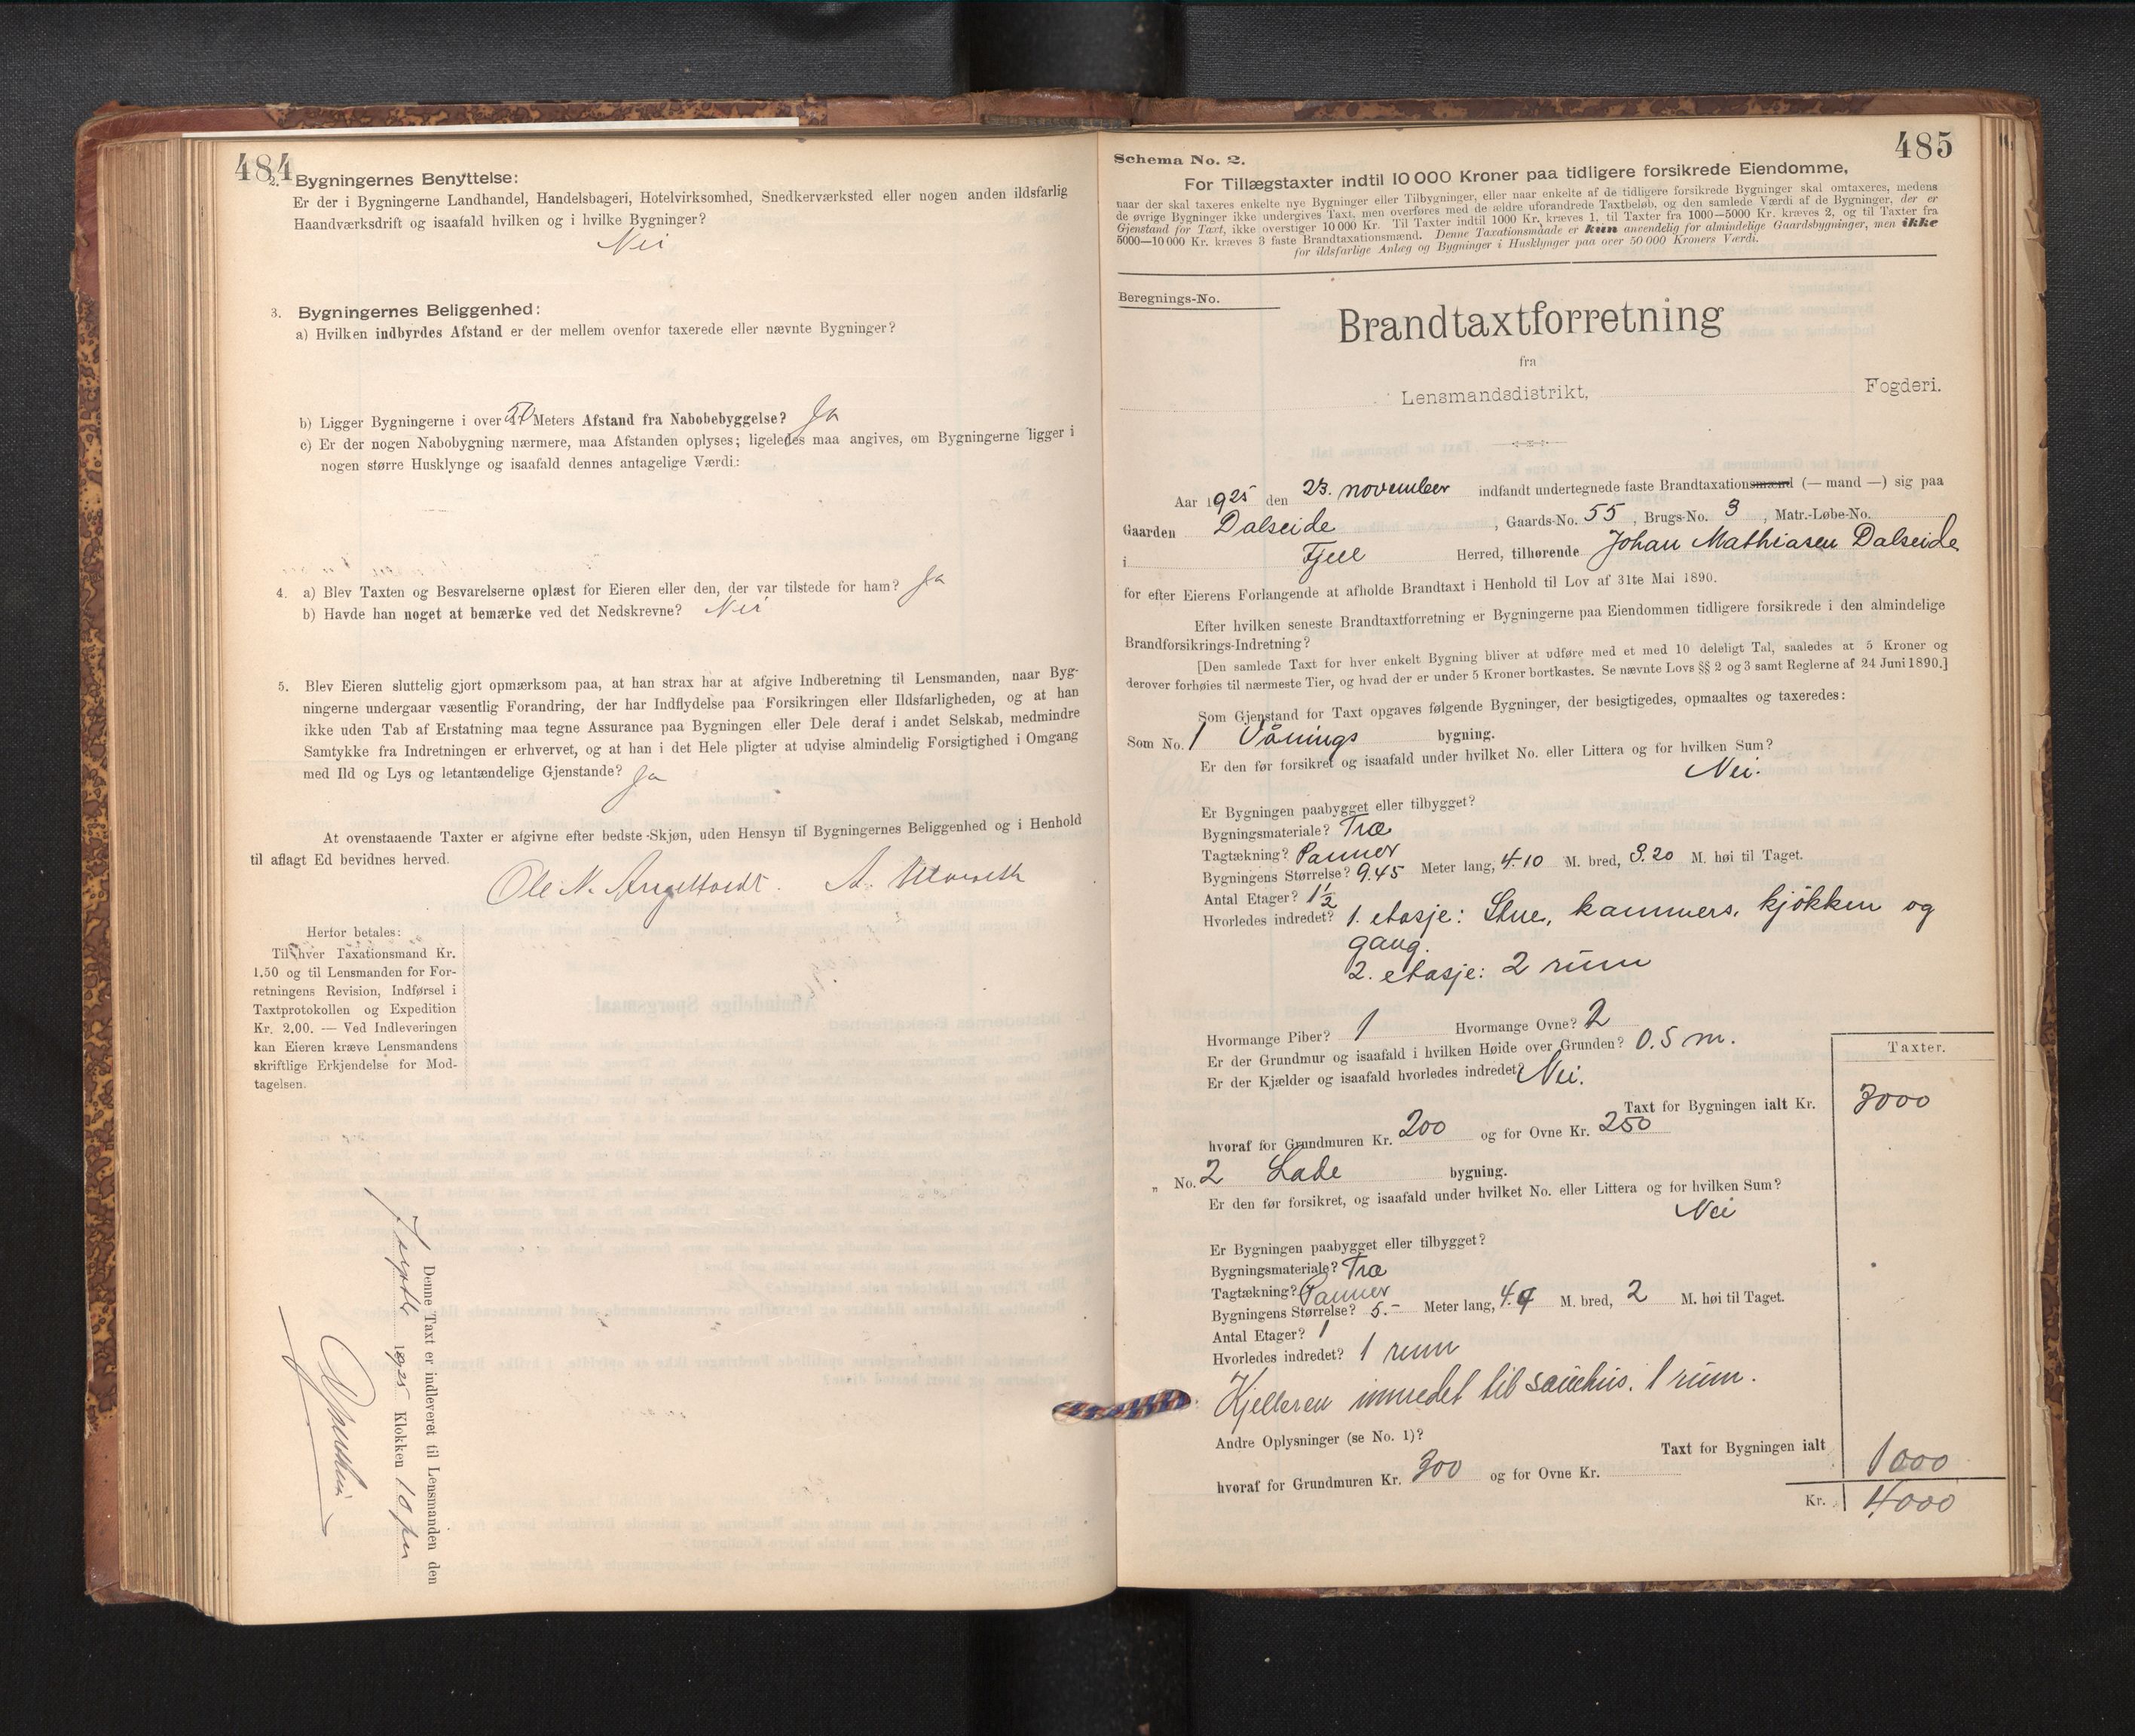 484
2. Bygningernes Benyttelse:
Er der i Bygningerne Landhandel, Handelsbageri, Hotelvirksomhed, Snedkerværksted eller nogen anden ildsfarlig
Haandværksdrift og isaafald hvilken og i hvilke Bygninger?
Nei
3. Bygningernes Beliggenhed:
a) Hvilken indbyrdes Afstand er der mellem ovenfor taxerede eller nævnte Bygninger?
b) Ligger Bygningerne i over 50 Meters Afstand fra Nabobebyggelse? Ja
c) Er der nogen Nabobygning nærmere, maa Afstanden oplyses; ligeledes maa angives, om Bygningerne ligger i
nogen større Husklynge og isaafald dennes antagelige Værdi:
4. a) Blev Taxten og Besvarelserne oplæst for Eieren eller den, der var tilstede for ham? Ja
b) Havde han noget at bemærke ved det Nedskrevne? Nei
5. Blev Eieren sluttelig gjort opmærksom paa, at han strax har at afgive Indberetning til Lensmanden, naar Byg-
ningerne undergaar væsentlig Forandring, der har Indflydelse paa Forsikringen eller Ildsfarligheden, og at han
ikke uden Tab af Erstatning maa tegne Assurance paa Bygningen eller Dele deraf i andet Selskab, medmindre
Samtykke fra Indretningen er erhvervet, og at han i det Hele pligter at udvise almindelig Forsigtighed i Omgang
med Ild og Lys og letantændelige Gjenstande? Ja
At ovenstaaende Taxter er afgivne efter bedste Skjøn, uden Hensyn til Bygningernes Beliggenhed og i Henhold
til aflagt Ed bevidnes herved.
Ole N. A.
Herfor betales:
Til hver Taxationsmand Kr.
1.50 og til Lensmanden for For-
retningens Revision, Indførsel i
Taxtprotokollen og Expedition
Kr. 2.00. — Ved Indleveringen
kan Eieren kræve Lensmandens
skriftlige Erkjendelse for Mod-
tagelsen.
Denne Taxt er indleveret til Lensmanden den
1925 Klokken 10
485
Schema No. 2.
For Tillægstaxter indtil 10 000 Kroner paa tidligere forsikrede Eiendomme,
naar der skal taxeres enkelte nye Bygninger eller Tilbygninger, eller naar enkelte af de tidligere forsikrede Bygninger skal omtaxeres, medens
de øvrige Bygninger ikke undergives Taxt, men overføres med de ældre uforandrede Taxtbeløb, og den samlede Værdi af de Bygninger, der er
Gjenstand for Taxt, ikke overstiger 10 000 Kr. Til Taxter indtil 1000 Kr. kræves 1, til Taxter fra 1000—5000 Kr. kræves 2, og til Taxter fra
5000—10 000 Kr. kræves 3 faste Brandtaxationsmænd. Denne Taxationsmaade er kun anvendelig for almindelige Gaardsbygninger, men ikke
for ildsfarlige Anlæg og Bygninger i Husklynger paa over 50 000 Kroners Værdi.
Beregnings-No.
Brandtaxtforretning
fra
Lensmandsdistrikt, Fogderi.
Aar 1925 den 23. november indfandt undertegnede faste Brandtaxationsmænd (— mand —) sig paa
Gaarden Dalseide, Gaards-No. 55, Brugs-No. 3, Matr.-Løbe-No.
i Fjell Herred, tilhørende Johan Mathiasen Dalseide
for efter Eierens Forlangende at afholde Brandtaxt i Henhold til Lov af 31te Mai 1890.
Efter hvilken seneste Brandtaxtforretning er Bygningerne paa Eiendommen tidligere forsikrede i den almindelige
Brandforsikrings-Indretning?
[Den samlede Taxt for hver enkelt Bygning bliver at udføre med et med 10 deleligt Tal, saaledes at 5 Kroner og
derover forhøies til nærmeste Tier, og hvad der er under 5 Kroner bortkastes. Se nævnte Lovs §§ 2 og 3 samt Reglerne af 24 Juni 1890.]
Som Gjenstand for Taxt opgaves følgende Bygninger, der besigtigedes, opmaaltes og taxeredes:
Som No. 1 Vånings bygning.
Er den før forsikret og isaafald under hvilket No. eller Littera og for hvilken Sum?
Nei.
Er Bygningen paabygget eller tilbygget?
Bygningsmateriale? Træ
Tagtækning? Panner
Bygningens Størrelse? 9.45 Meter lang, 4.10 M. bred, 3.20 M. høi til Taget.
Antal Etager? 1½
Hvorledes indredet? 1. etasje: Stue, kammers, kjökken og
gang.
2. etasje: 2 rum
Hvormange Piber? 1 Hvormange Ovne? 2
Er der Grundmur og isaafald i hvilken Høide over Grunden? 0.5 m.
Er der Kjælder og isaafald hvorledes indredet? Nei.
Taxter.
Taxt for Bygningen ialt Kr. 3000
hvoraf for Grundmuren Kr. 200 og for Ovne Kr. 250
" No. 2 Lade bygning.
Er den før forsikret, og isaafald under hvilket No. eller Littera og for hvilken Sum?
Nei
Er Bygningen paabygget eller tilbygget?
Bygningsmateriale? Træ
Tagtækning? Panner
Bygningens Størrelse? 5.- Meter lang, 4. M. bred, 2 M. høi til Taget.
Antal Etager? 1
Hvorledes indredet? 1 rum
Kjelleren innredet til sauehus. 1 rum.
Andre Oplysninger (se No. 1)?
Taxt for Bygningen ialt 1000
hvoraf for Grundmuren Kr. 300 og for Ovne Kr.
Kr. 4000